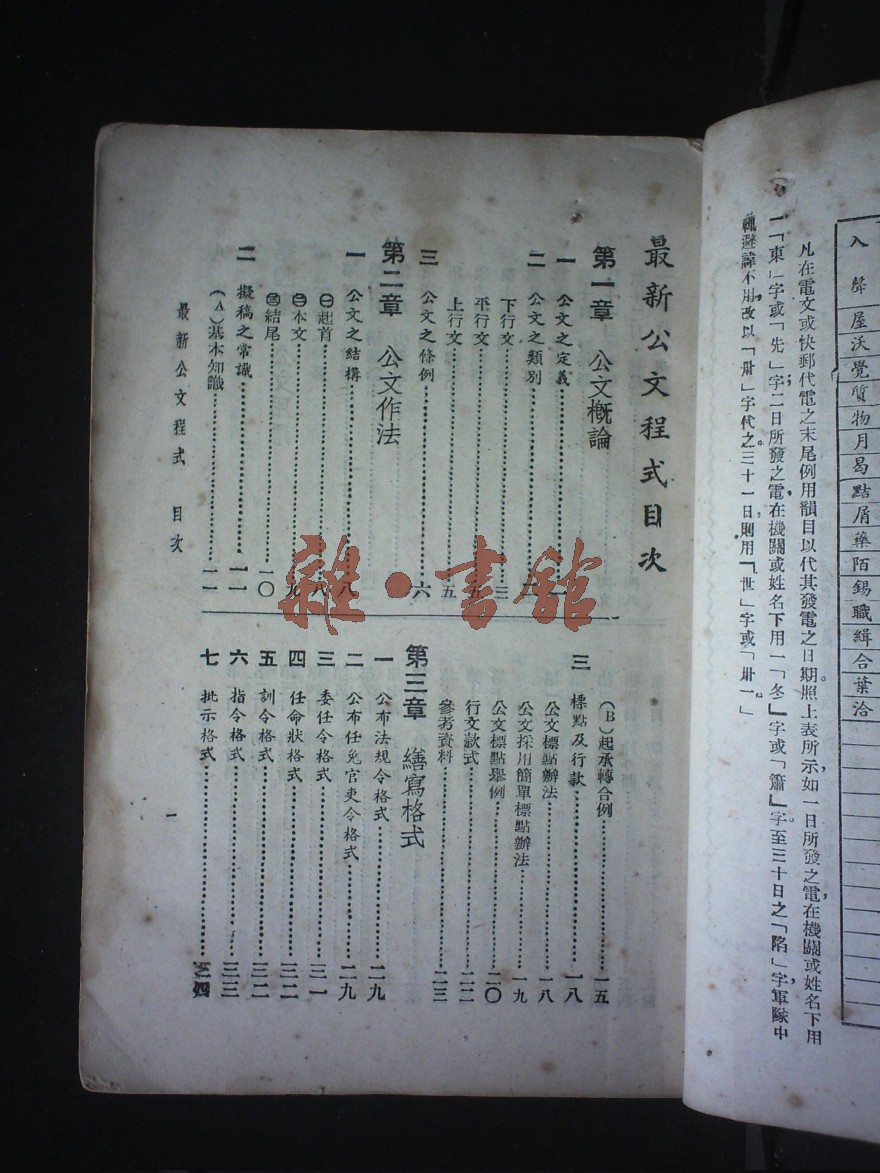 入聲 屋沃覺質物月曷點屑藥陌錫職緝合葉洽
凡在電文或快郵代電之末尾例用韻目以代其發電之日期照上表所示如一日所發之電在機關或姓名下用
一「東」字或「先」字二日所發之電在機關或姓名下用一「冬」字或「蕭」字至三十日之「陷」字軍隊中
諱避諱不用改以「卅」字代之三十一日則用「世」字或「卅一」
最新公文程式目次
第一章 公文概論
一 公文之定義
二 公文之類別
下行文 三
平行文 五
上行文 五
三 公文之條例 六
第二章 公文作法
一 公文之結構 八
㊀起首 八
㊁本文 九
㊂結尾 一〇
二 擬稿之常識 一一
(A)基本知識 一一
(B)起承轉合例 一五
三 標點及行款 一八
公文標點辦法 一八
公文採用簡單標點辦法 一九
公文標點舉例 二〇
行文款式 二二
參考資料 二三
第三章 繕寫格式
一 公布法規令格式 二九
二 公布任免官吏令格式 二九
三 委任令格式 三一
四 任命狀格式 三二
五 訓令格式 三二
六 指令格式 三三
七 批示格式 三四
最新公文程式 目次
一
雜·書館